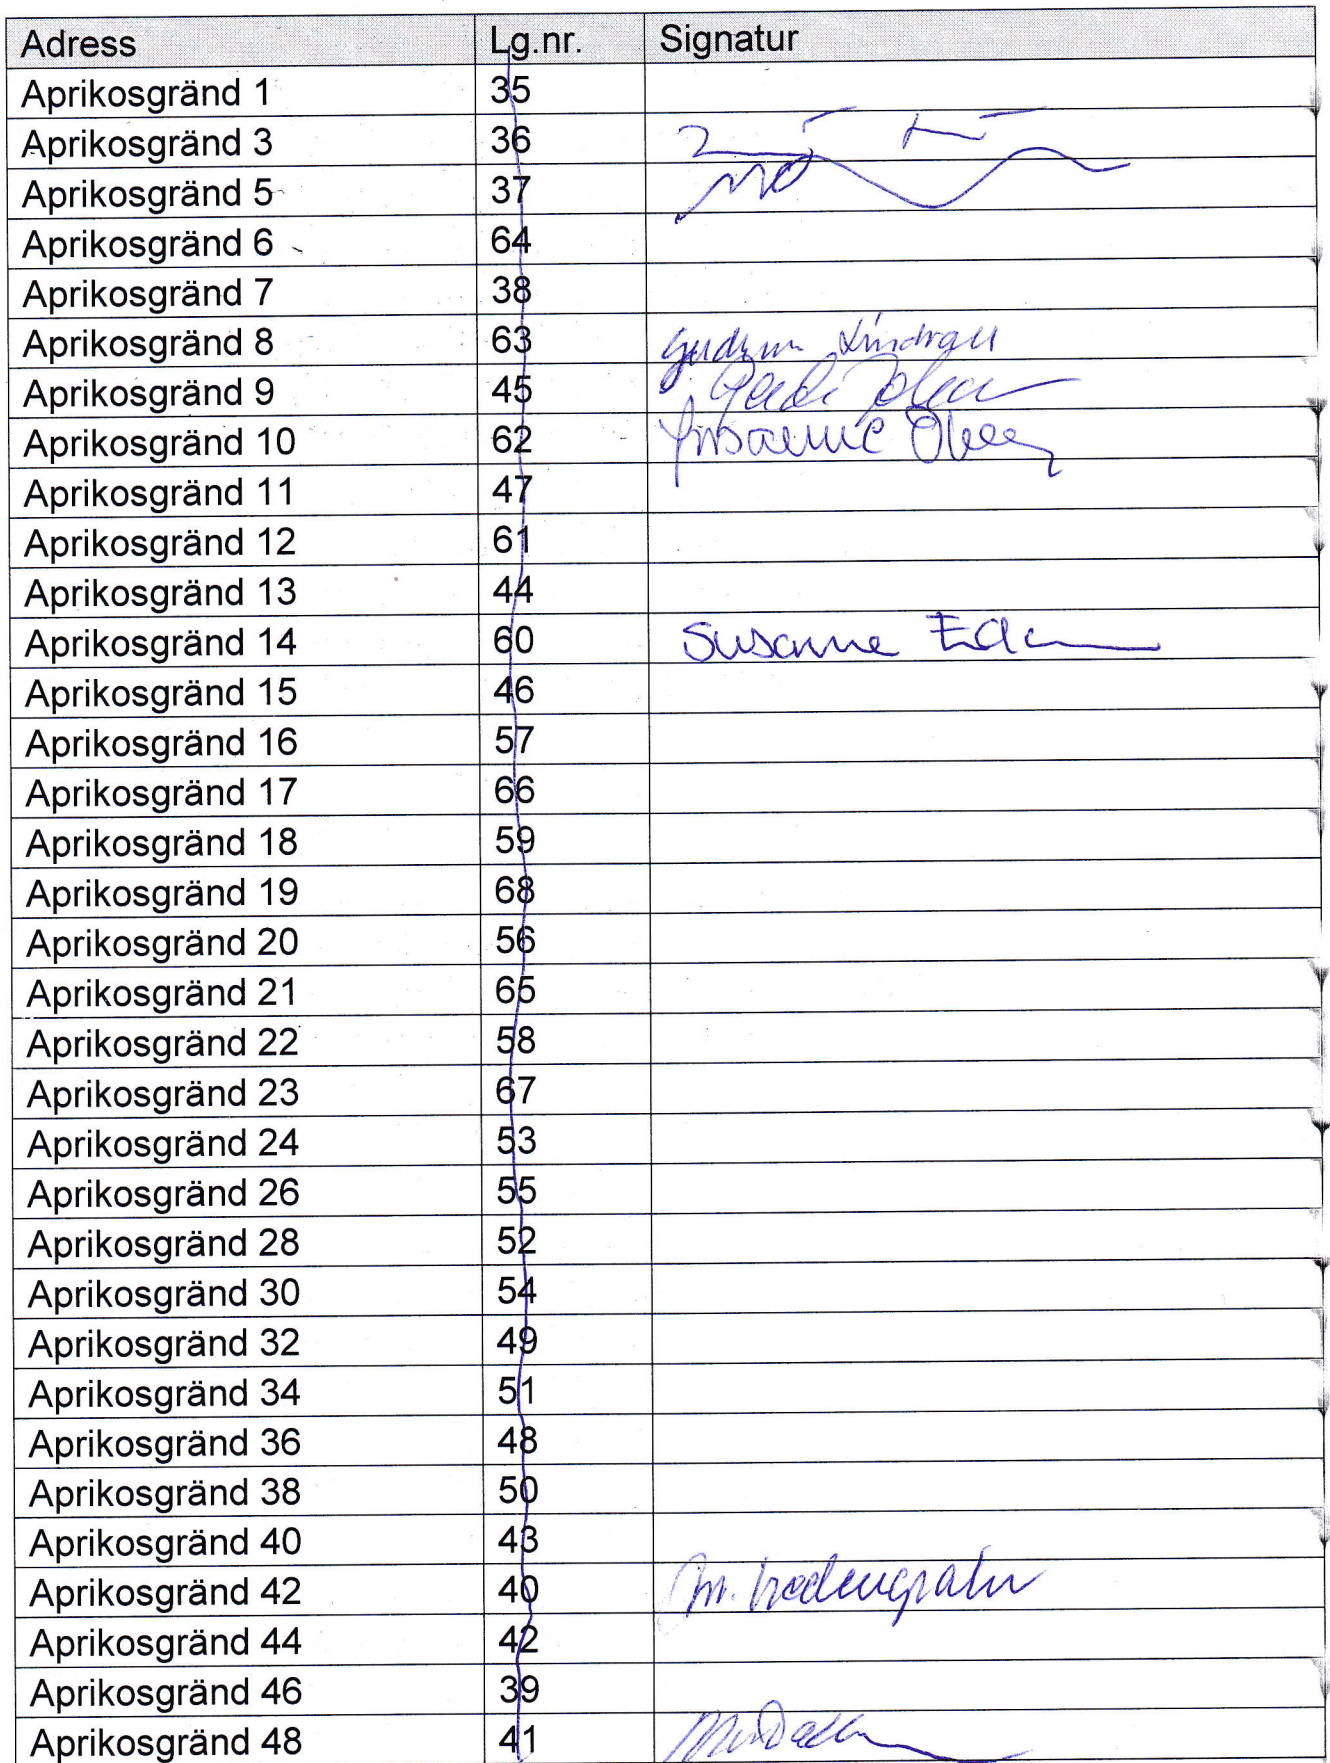 Adress Lg.nr. Signatur
Aprikosgränd 1 35
Aprikosgränd 3 36
Aprikosgränd 5 37
Aprikosgränd 6 64
Aprikosgränd 7 38
Aprikosgränd 8 63
Aprikosgränd 9 45
Aprikosgränd 10 62
Aprikosgränd 11 47
Aprikosgränd 12 61
Aprikosgränd 13 44
Aprikosgränd 14 60 Susanne
Aprikosgränd 15 46
Aprikosgränd 16 57
Aprikosgränd 17 66
Aprikosgränd 18 59
Aprikosgränd 19 68
Aprikosgränd 20 56
Aprikosgränd 21 65
Aprikosgränd 22 58
Aprikosgränd 23 67
Aprikosgränd 24 53
Aprikosgränd 26 55
Aprikosgränd 28 52
Aprikosgränd 30 54
Aprikosgränd 32 49
Aprikosgränd 34 51
Aprikosgränd 36 48
Aprikosgränd 38 50
Aprikosgränd 40 43
Aprikosgränd 42 40 M.
Aprikosgränd 44 42
Aprikosgränd 46 39
Aprikosgränd 48 41